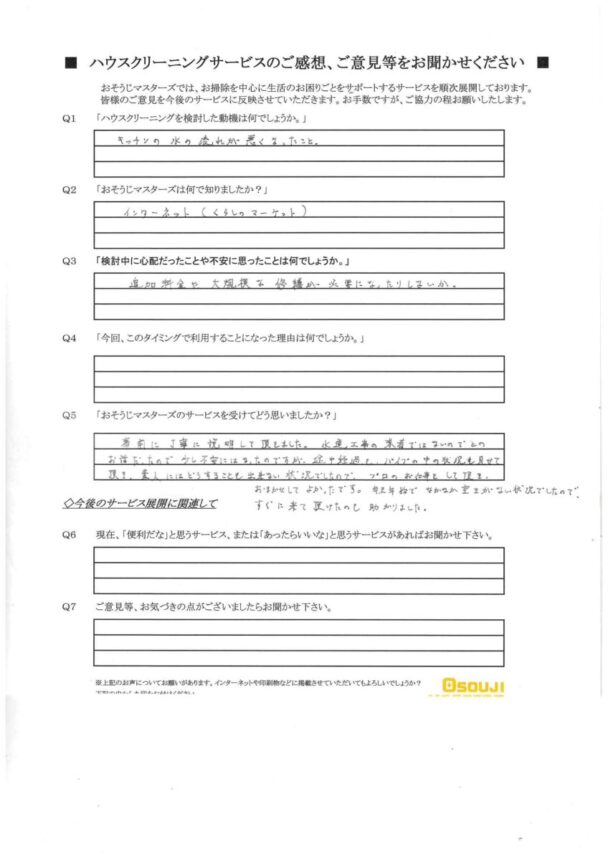 ■ ハウスクリーニングサービスのご感想、ご意見等をお聞かせください ■
おそうじマスターズでは、お掃除を中心に生活のお困りごとをサポートするサービスを順次展開しております。
皆様のご意見を今後のサービスに反映させていただきます。お手数ですが、ご協力の程お願いしたします。
Q1 「ハウスクリーニングを検討した動機は何でしょうか。」
キッチンの水の流れが悪くなったこと。
Q2 「おそうじマスターズは何で知りましたか？」
インターネット（くらしのマーケット）
Q3 「検討中に心配だったことや不安に思ったことは何でしょうか。」
追加料金や大規模な修繕が必要になったりしないか。
Q4 「今回、このタイミングで利用することになった理由は何でしょうか。」
Q5 「おそうじマスターズのサービスを受けてどう思いましたか？」
事前に丁寧に説明して頂きました。水道工事の業者ではないのでとの
お話だったので少し不安にはなったのですが、途中経過も、パイプの中の状況も見せて
頂き、素人にはどうすることも出来ない状況でしたので、プロのお仕事をして頂き、
おまかせしてよかったです。年末年始でなかなか空きがない状況でしたので、
◇今後のサービス展開に関連して
すぐに来て頂けたのも助かりました。
Q6 現在、「便利だな」と思うサービス、または「あったらいいな」と思うサービスがあればお聞かせ下さい。
Q7 ご意見等、お気づきの点がございましたらお聞かせ下さい。
※上記のお声についてお願いがあります。インターネットや印刷物などに掲載させていただいてもよろしいでしょうか？
OSOUJI